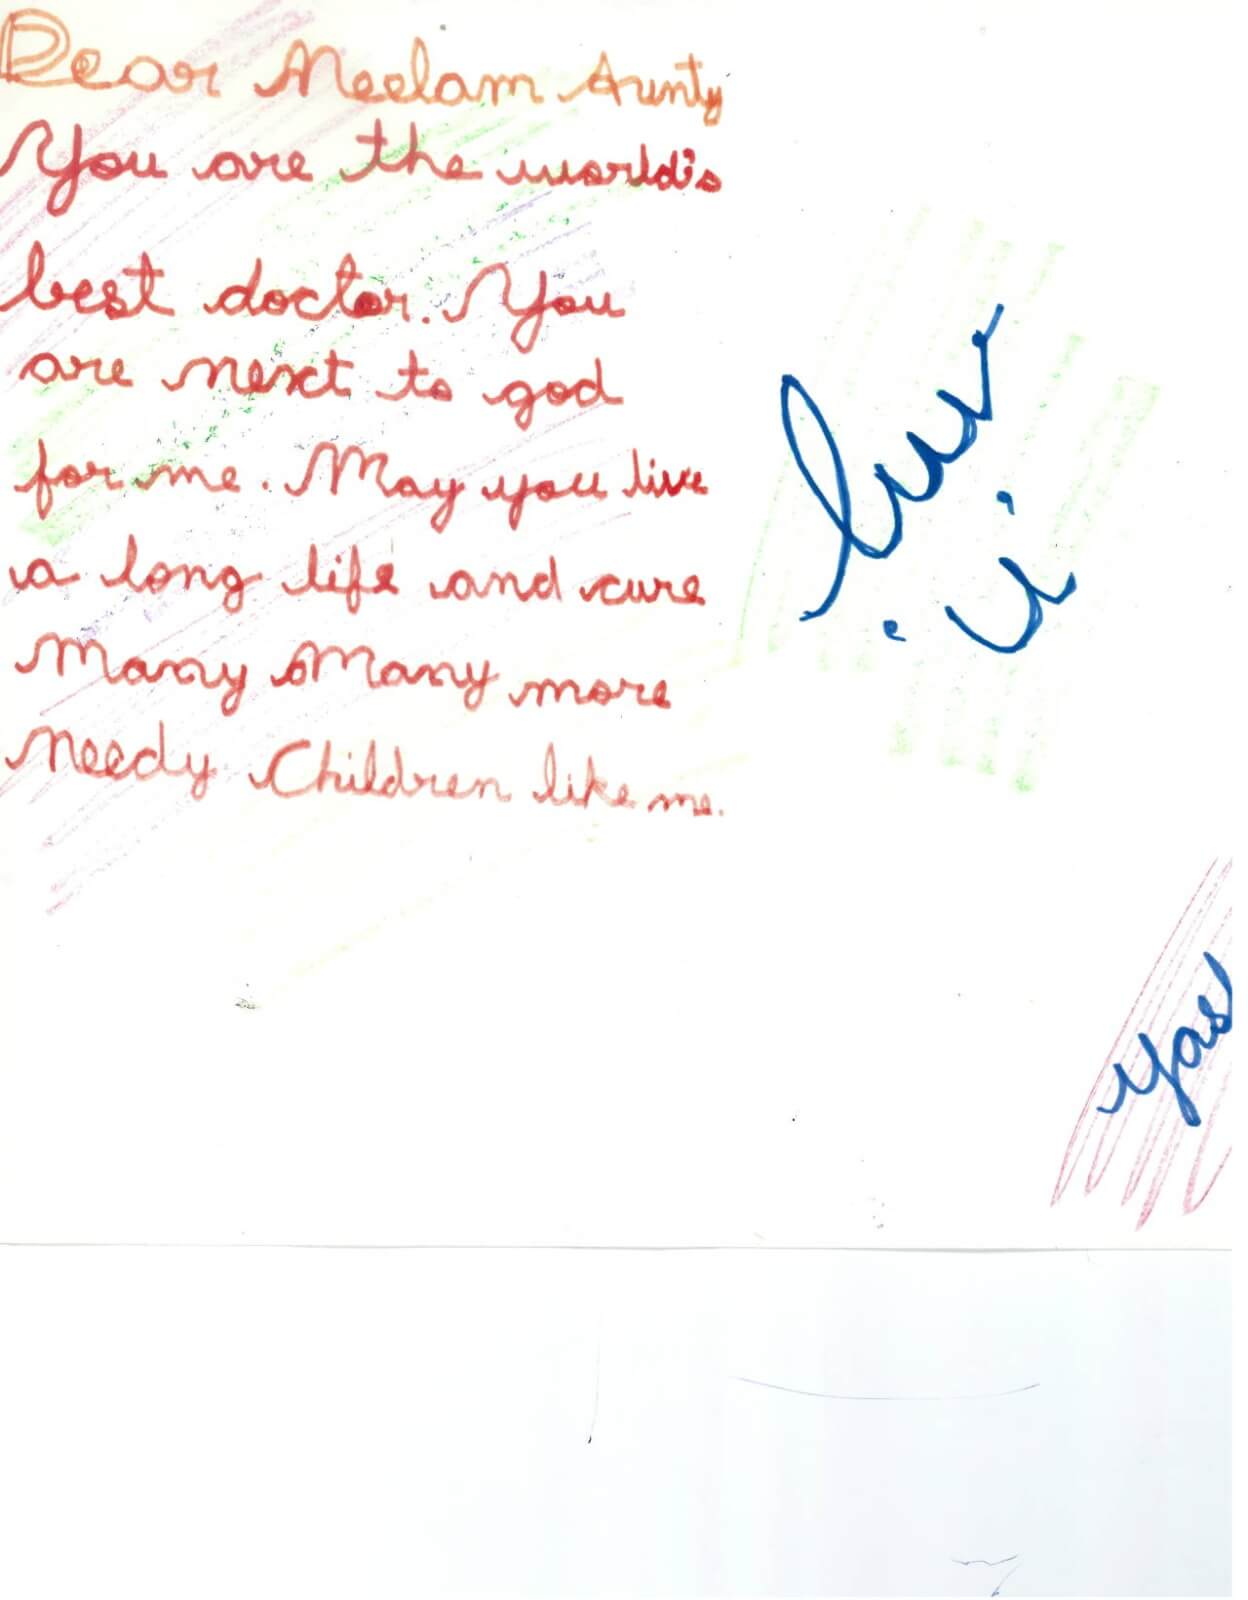 Dear Neelam Aunty
You are the world's
best doctor. You
are next to god
for me. May you live
a long life and cure
Many Many more
Needy Children like me.
luv
u
Yas